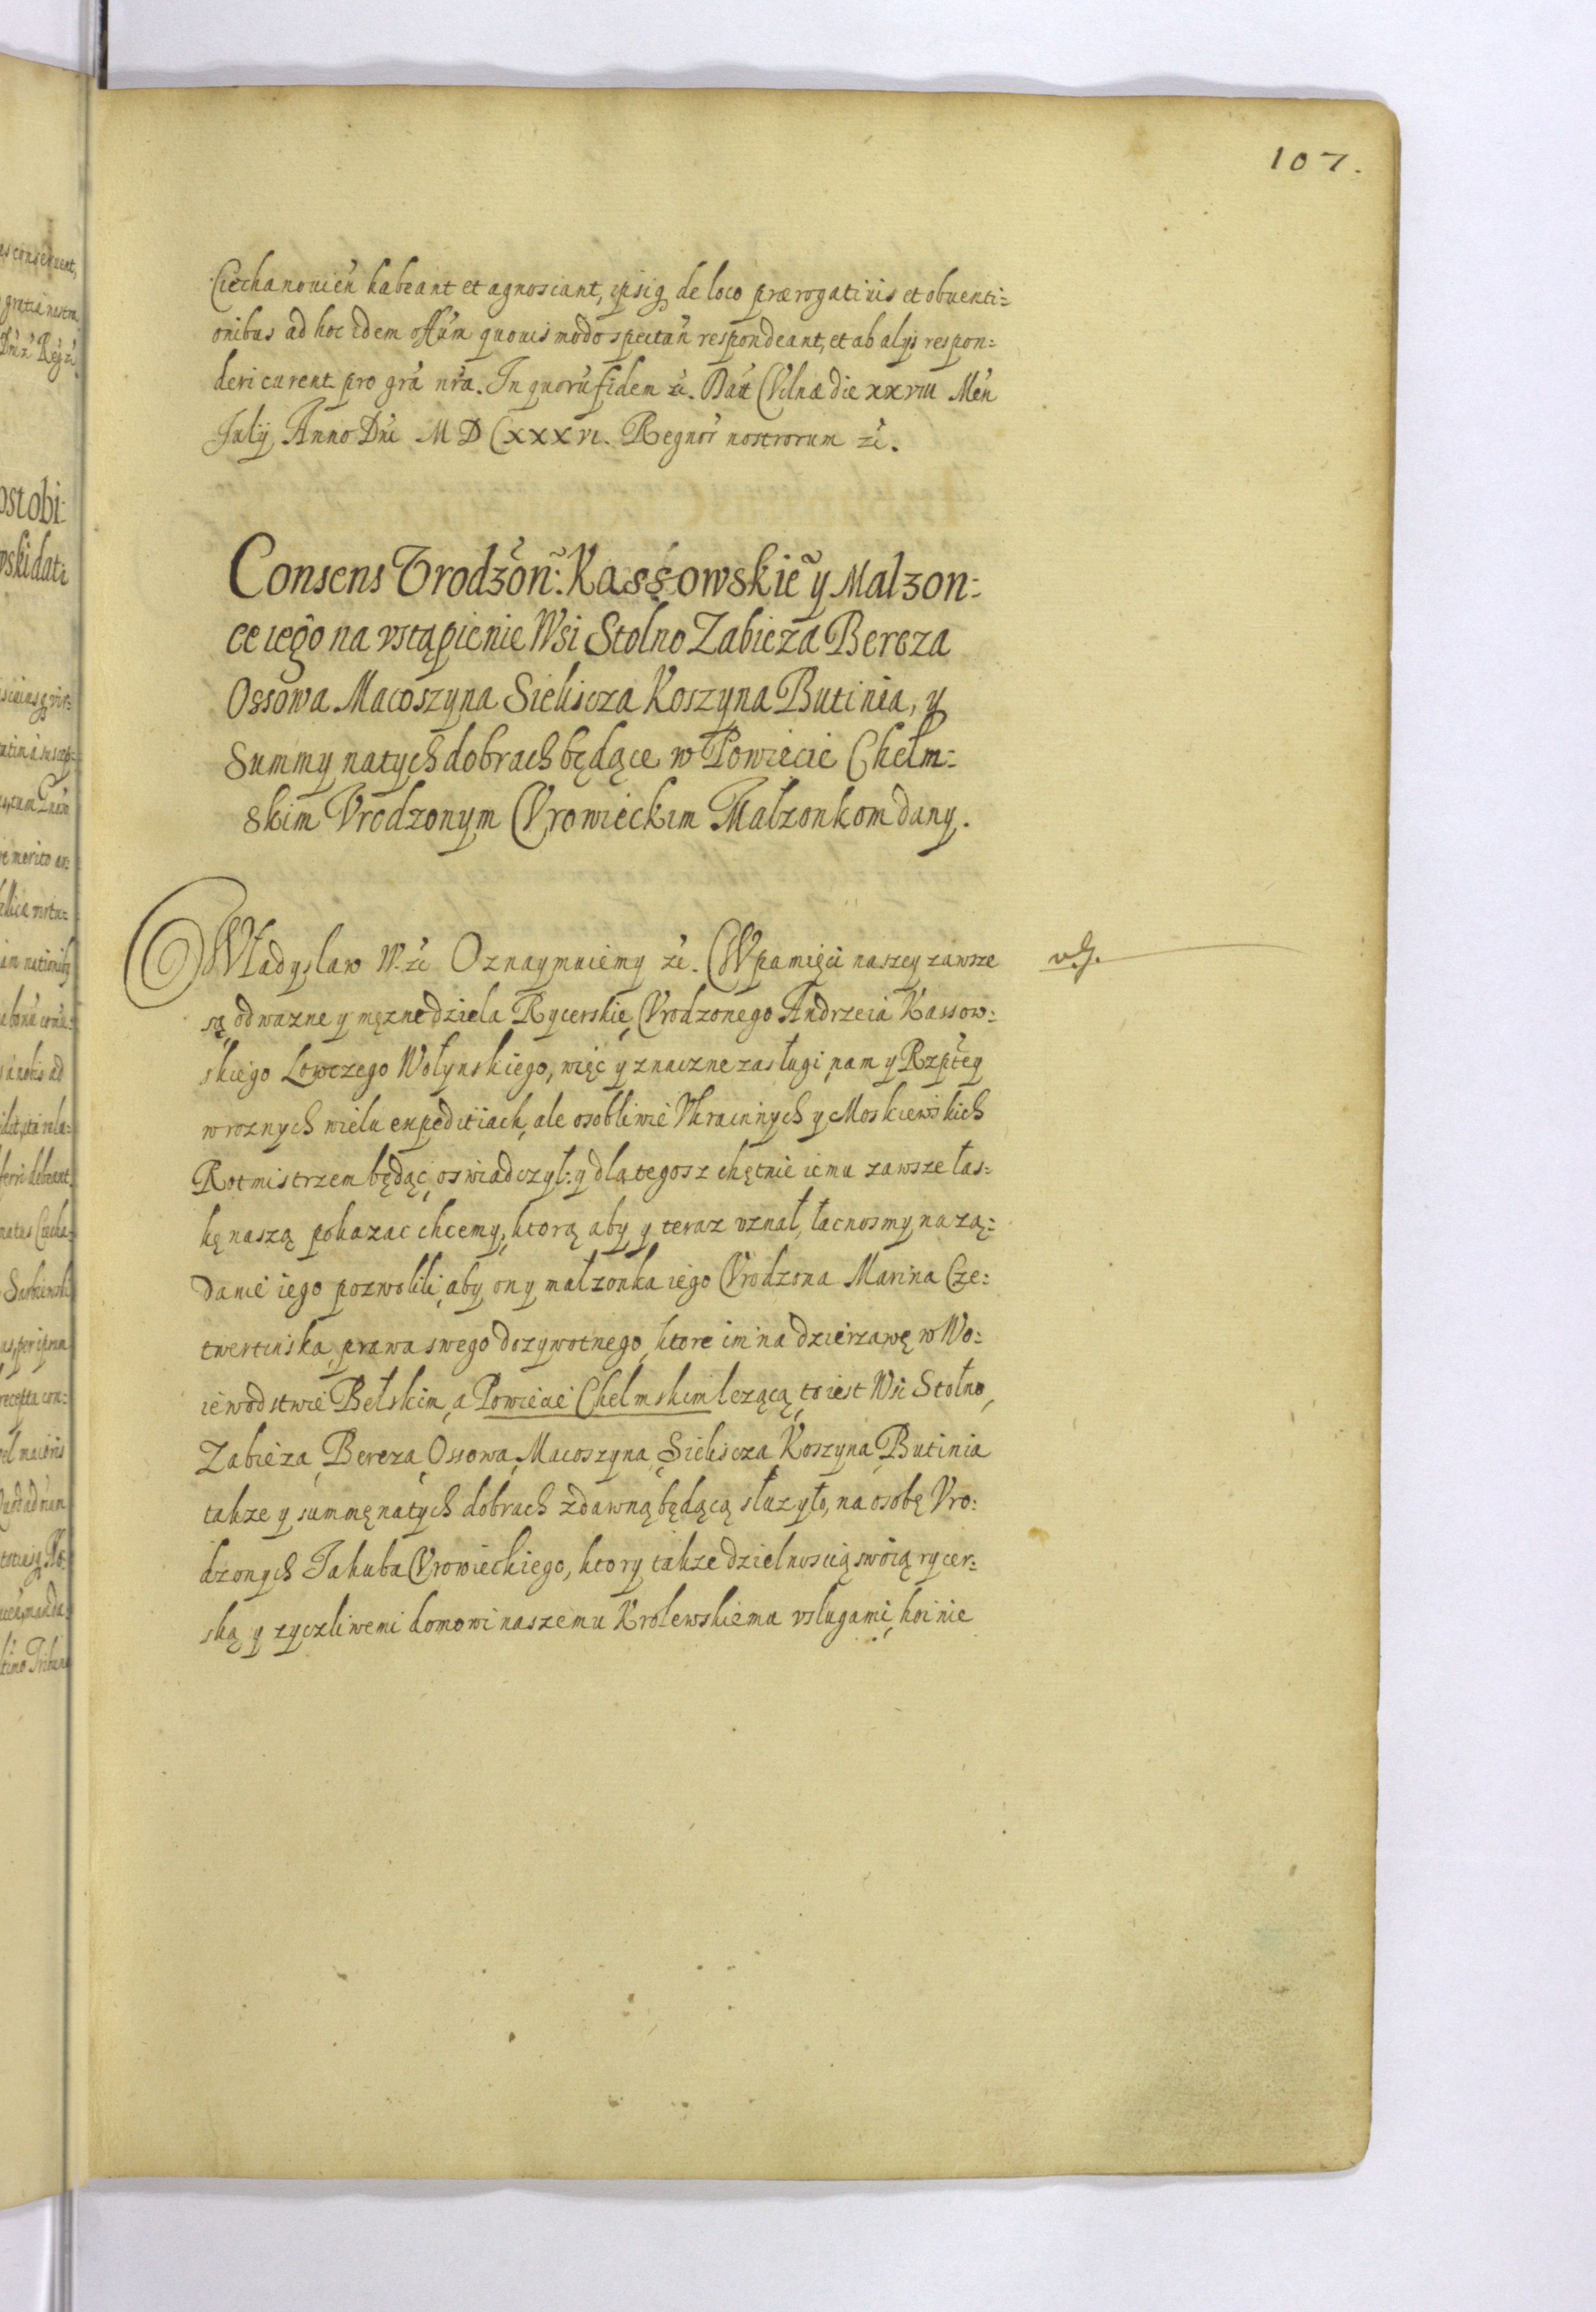 107.
Ciechanouień habeant et agnosciant, ipsiq de loco prærogatiuis et obuenti=
onibus ad hoc idem offũm quouis modo spectań respondeant, et ab alijs respon=
deri curent pro grã nrã. In quorũ fidem zc. Dat Vilnæ die xxviii Meń
Julij Anno Dni M D CXXXVI. Regnor̃ nostrorum zc.
Consens Vrodzon̄: Kassowskie͠ y Malzon=
ce iego na vstąpienie Wsi Stolno Zabieza Bereza
Ossowa Macoszyna Sieliscza Koszyna Butinia, y
Summy na tych dobrach będące w Powiecie Chełm=
skim Vrodzonym Vrowieckim Małzonkom dany.
Władysław IV. zc Oznaymuiemy zc. W pamięci naszey zawsze
są odwazne y męzne dziela Rycerskie, Vrodzonego Andrzeia Kassow=
skiego Łowczego Wołynskiego, więc y znaczne zasługi, nam y Rzptey
w roznych wielu expeditiach, ale osobliwie Vkrainnych y Moskiewskich
Rotmistrzem będąc, oswiadczył: y dla tegosz chętnie iemu zawsze łas=
kę naszą pokazac chcemy, ktorą aby y teraz vznał, łacnosmy na zą=
danie iego pozwolili, aby on y małzonka iego Vrodzona Marina Cze=
twertinska, prawa swego dozywotnego, ktore im na dzierzawę w Wo=
iewodstwie Bełskim, a Powiecie Chełmskim lezącą, to iest Wsi Stołno,
Zabieza, Bereza, Ossowa, Macoszyna, Sieliscza Koszyna, Butinia
takze y summę na tych dobrach zdawna będącą słuzyło, na osobę Vro=
dzonych Jakuba Vrowieckiego, ktory takze dzielnoscią swoią rycer=
ską y zyczliwemi domowi naszemu Krolewskiemu vsługami, hoinie